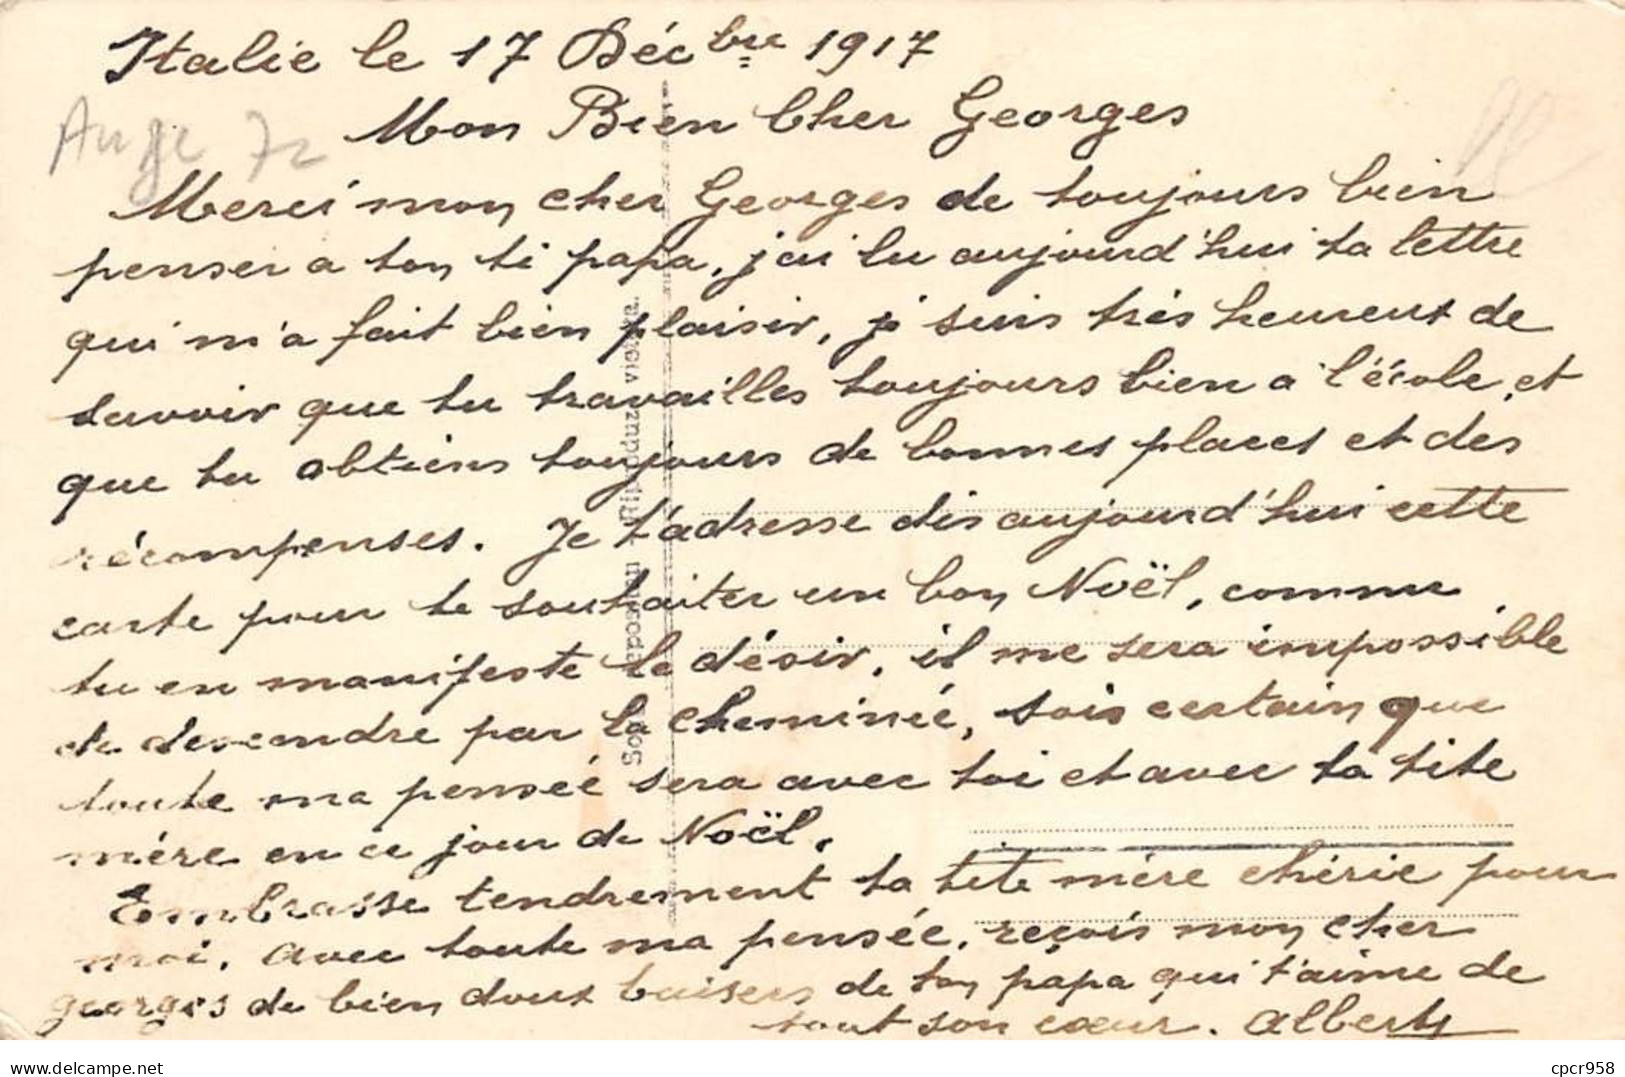 Italie le 17 Décbre 1917
Mon Bien Cher Georges
Ange 72
Merci mon cher Georges de toujours bien
penser a ton ti papa, j'ai lu aujourd'hui ta lettre
qui m'a fait bien plaisir, je suis très heureux de
savoir que tu travailles toujours bien a l'école, et
que tu obtiens toujours de bonnes places et des
récompenses. Je t'adresse dès aujourd'hui cette
carte pour te souhaiter un bon Noël, comme
tu en manifeste le désir, il me sera impossible
de descendre par la cheminée, sois certain que
toute ma pensée sera avec toi et avec ta tite
mére en ce jour de Noël.
Embrasse tendrement ta tite mère chérie pour
moi. avec toute ma pensée, reçois mon cher
georges de bien doux baisers de ton papa qui t'aime de
tout son cœur. Albert
cpcr958